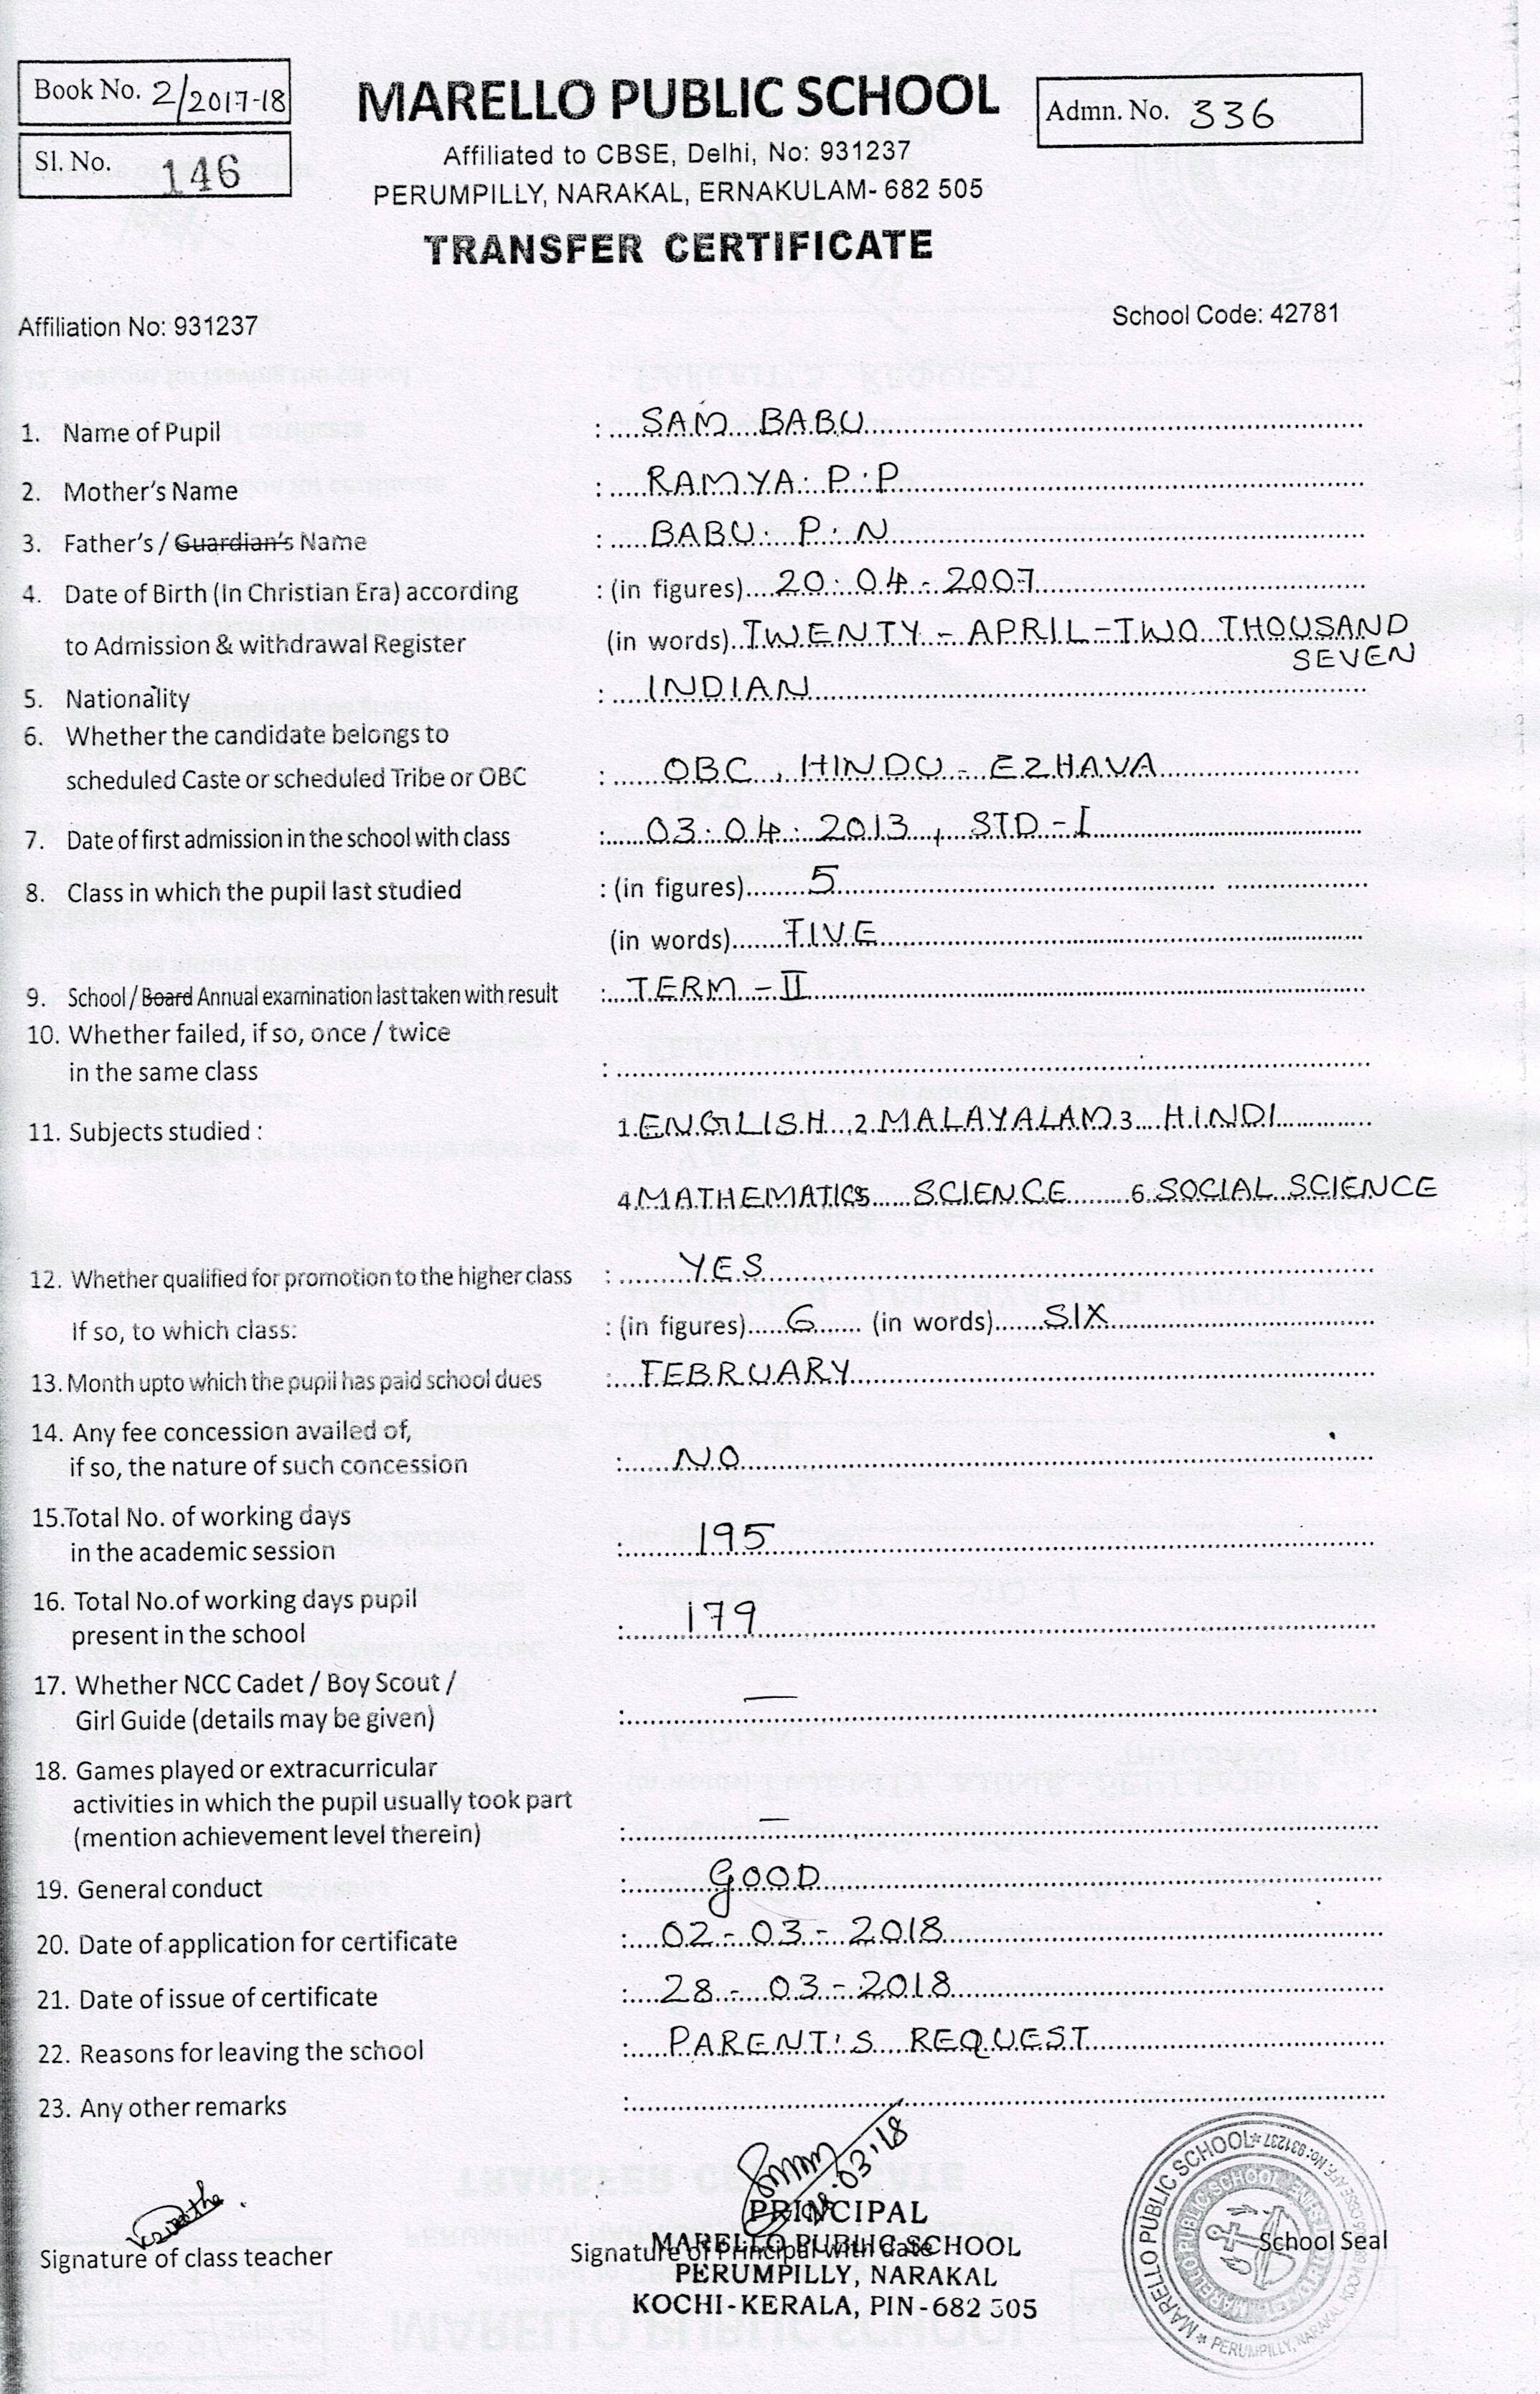 Book No. 2/2017-18
Sl. No. 146
MARELLO PUBLIC SCHOOL
Admn. No. 336
Affiliated to CBSE, Delhi, No: 931237
PERUMPILLY, NARAKAL, ERNAKULAM- 682 505
TRANSFER CERTIFICATE
Affiliation No: 931237
School Code: 42781
1. Name of Pupil : SAM BABU
2. Mother's Name : RAMYA. P.P
3. Father's / Guardian's Name : BABU. P.N
4. Date of Birth (In Christian Era) according : (in figures) 20.04-2007
to Admission & withdrawal Register (in words) TWENTY - APRIL-TWO THOUSAND
SEVEN
5. Nationality : INDIAN
6. Whether the candidate belongs to
scheduled Caste or scheduled Tribe or OBC : OBC, HINDU - EZHAVA
7. Date of first admission in the school with class : 03.04.2013, STD-I
8. Class in which the pupil last studied : (in figures) 5
(in words) FIVE
9. School / Board Annual examination last taken with result : TERM - II
10. Whether failed, if so, once / twice
in the same class :
11. Subjects studied : 1. ENGLISH 2. MALAYALAM 3. HINDI
4. MATHEMATICS 5. SCIENCE 6. SOCIAL SCIENCE
12. Whether qualified for promotion to the higher class : YES
If so, to which class: : (in figures) 6 (in words) SIX
13. Month upto which the pupil has paid school dues : FEBRUARY
14. Any fee concession availed of,
if so, the nature of such concession : NO
15.Total No. of working days
in the academic session : 195
16. Total No.of working days pupil
present in the school : 179
17. Whether NCC Cadet / Boy Scout /
Girl Guide (details may be given) : —
18. Games played or extracurricular
activities in which the pupil usually took part
(mention achievement level therein) : —
19. General conduct : GOOD
20. Date of application for certificate : 02-03-2018
21. Date of issue of certificate : 28-03-2018
22. Reasons for leaving the school : PARENT'S REQUEST
23. Any other remarks :
Signature of class teacher
Signature of Principal with date
PRINCIPAL
MARELLO PUBLIC SCHOOL
PERUMPILLY, NARAKAL
KOCHI-KERALA, PIN-682 505
School Seal
MARELLO PUBLIC SCHOOL
PERUMPILLY, NARAKAL